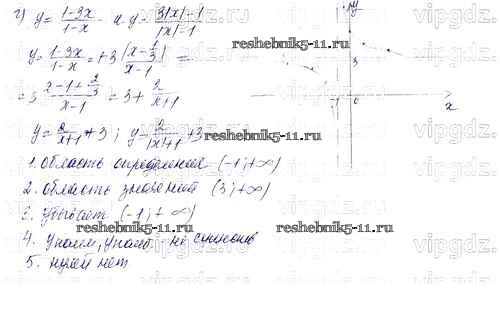 г) y = (1-3x)/(1-x) и y = (3|x|-1)/(|x|-1)
y = (1-3x)/(1-x) = +3 (x-1/3)/(x-1) =
= 3 (x-1+2/3)/(x-1) = 3 + 2/(x+1)
y = 2/(x+1) + 3; y = 2/(|x|+1) + 3
1. область определения (-1; +∞)
2. область значений (3; +∞)
3. убывает (-1; +∞)
4. y наим, y наиб. - не
5. нулей нет
y
3
-1 0 x
reshebnik5-11.ru
reshebnik5-11.ru
reshebnik5-11.ru
reshebnik5-11.ru
vipgdz.ru
vipgdz.ru
vipgdz.ru
vipgdz.ru